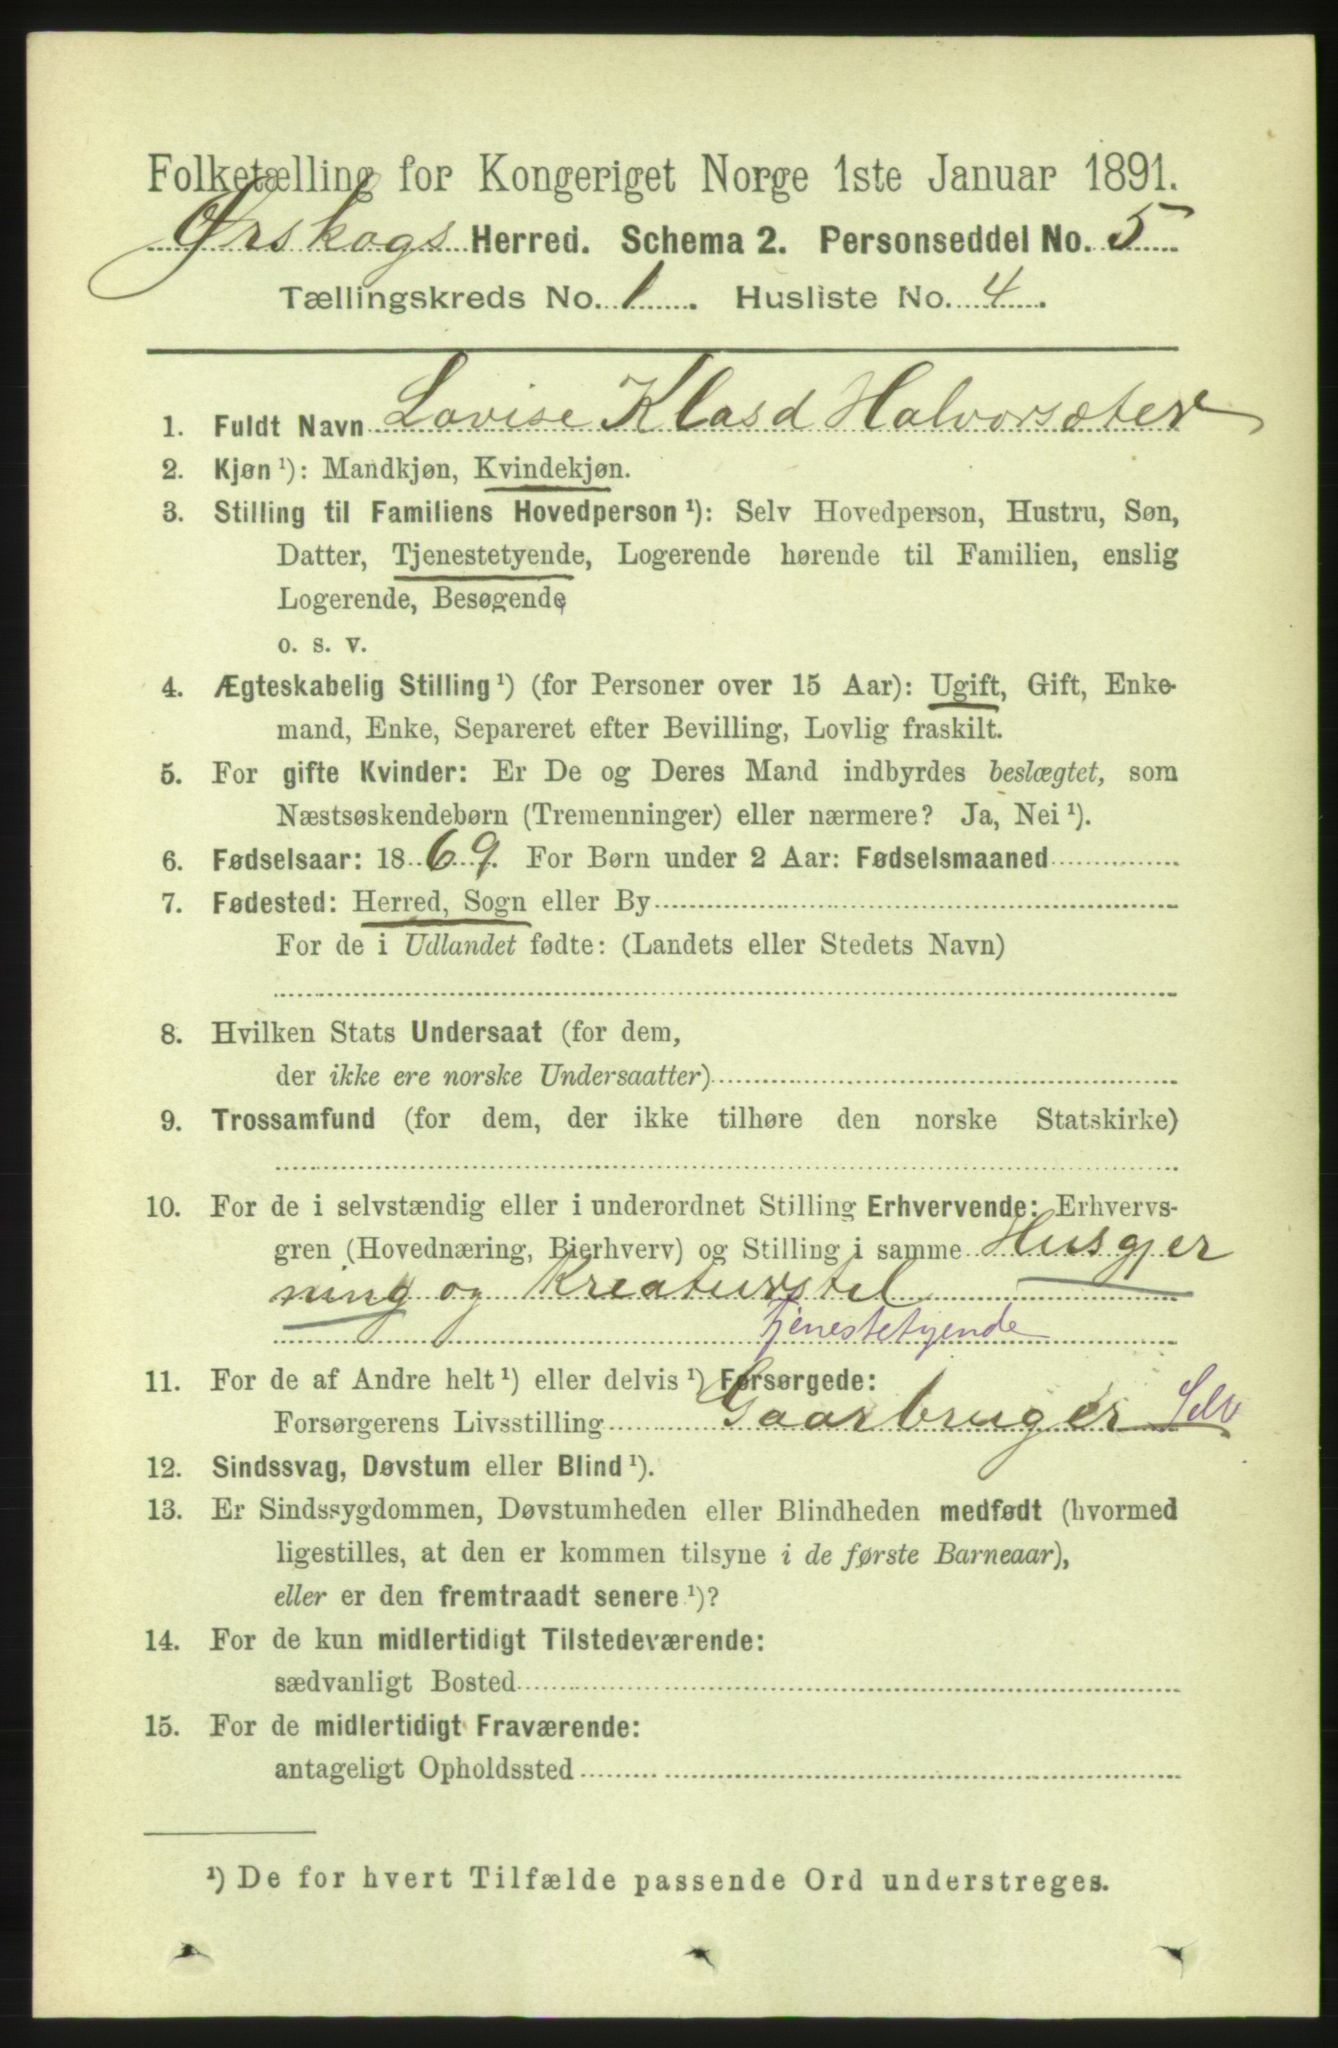 Folketælling for Kongeriget Norge 1ste Januar 1891.
Ørskogs Herred. Schema 2. Personseddel No. 5
Tællingskreds No. 1. Husliste No. 4.
1. Fuldt Navn Lovise Klasd Halvorsæter
2. Kjøn ¹): Mandkjøn, Kvindekjøn.
3. Stilling til Familiens Hovedperson ¹): Selv Hovedperson, Hustru, Søn,
Datter, Tjenestetyende, Logerende hørende til Familien, enslig
Logerende, Besøgende
o. s. v.
4. Ægteskabelig Stilling ¹) (for Personer over 15 Aar): Ugift, Gift, Enke-
mand, Enke, Separeret efter Bevilling, Lovlig fraskilt.
5. For gifte Kvinder: Er De og Deres Mand indbyrdes beslægtet, som
Næstsøskendebørn (Tremenninger) eller nærmere? Ja, Nei ¹).
6. Fødselsaar: 1869. For Børn under 2 Aar: Fødselsmaaned
7. Fødested: Herred, Sogn eller By
For de i Udlandet fødte: (Landets eller Stedets Navn)
8. Hvilken Stats Undersaat (for dem,
der ikke ere norske Undersaatter)
9. Trossamfund (for dem, der ikke tilhøre den norske Statskirke)
10. For de i selvstændig eller i underordnet Stilling Erhvervende: Erhvervs-
gren (Hovednæring, Bierhverv) og Stilling i samme Husgjer
ning og Kreaturstel
tjenestetyende
11. For de af Andre helt ¹) eller delvis ¹) Forsørgede:
Forsørgerens Livsstilling Gaarbruger Selv
12. Sindssvag, Døvstum eller Blind ¹).
13. Er Sindssygdommen, Døvstumheden eller Blindheden medfødt (hvormed
ligestilles, at den er kommen tilsyne i de første Barneaar),
eller er den fremtraadt senere ¹)?
14. For de kun midlertidigt Tilstedeværende:
sædvanligt Bosted
15. For de midlertidigt Fraværende:
antageligt Opholdssted
¹) De for hvert Tilfælde passende Ord understreges.